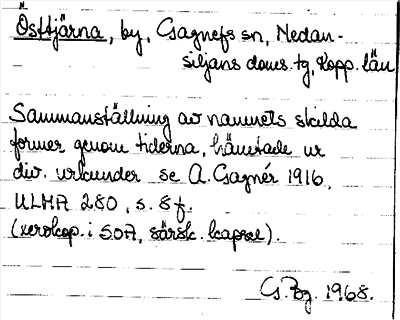 Östtjärna, by, Gagnefs sn, Nedan-
siljans doms. tg, Kopp. län
Sammanställning av namnets skilda
former genom tiderna, hämtade ur
div. urkunder se A. Gagnér 1916,
ULMA 280, s. 8 f.
(xerokop. i SOA, särsk. kapsel).
1968.